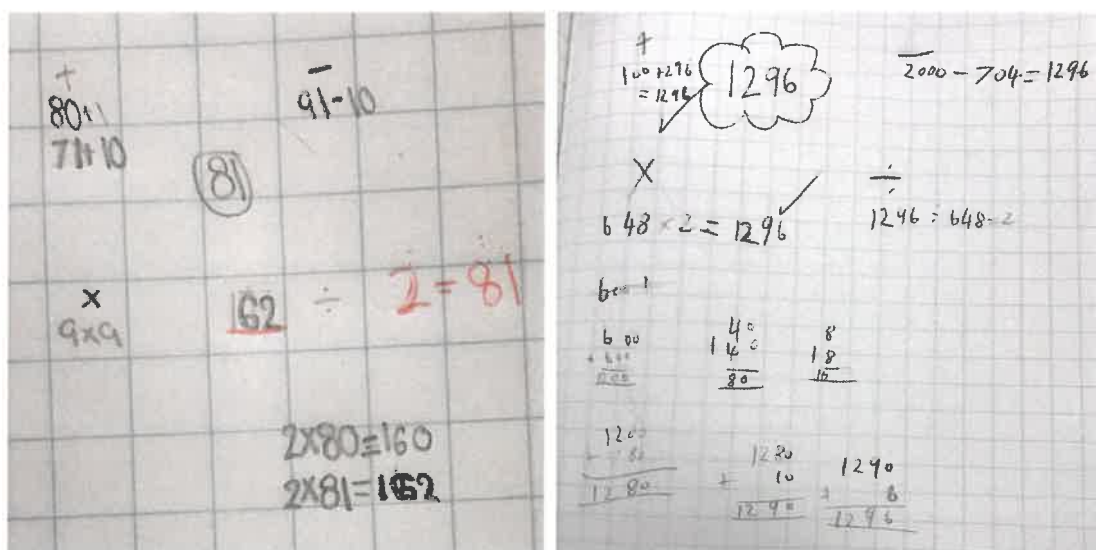 +
80+1
71+10
−
91-10
81
×
9×9
162 ÷ 2 = 81
2×80=160
2×81=162
+
100+296
=1296
1296
−
2000 - 704 = 1296
×
648 × 2 = 1296
÷
1296 ÷ 648 = 2
600
+ 600
1200
40
+ 40
80
8
+ 8
16
1200
+ 80
1280
1280
+ 10
1290
1290
+ 6
1296